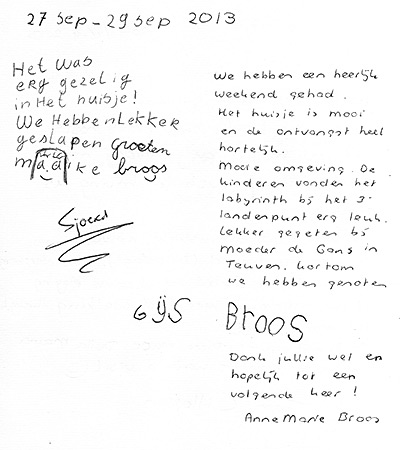 27 sep - 29 sep 2013
Het was
erg gezelig
in Het huisje!
We Hebben Lekker
geslapen groeten
maaike broos
Sjoerd
We hebben een heerlijk
weekend gehad.
Het huisje is mooi
en de ontvangst heel
hartelijk.
Mooie omgeving. De
kinderen vonden het
labyrinth bij het 3-
landenpunt erg leuk.
Lekker gegeten bij
Moeder de Gans in
Teuven. kortom
we hebben genoten
Gijs Broos
Dank jullie wel en
hopelijk tot een
volgende keer!
AnneMarie Broos